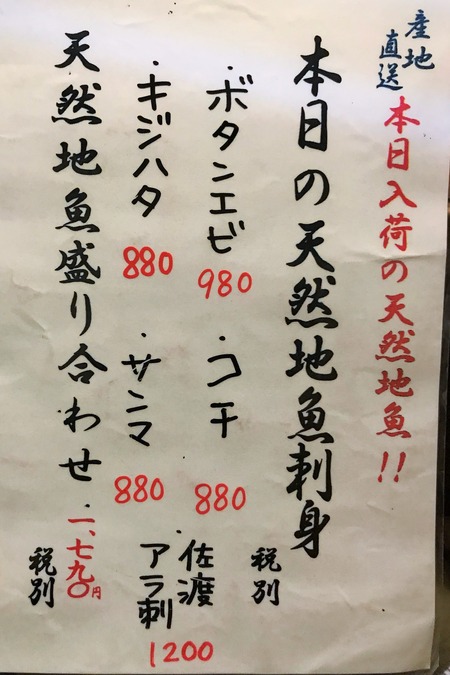 産地直送
本日入荷の天然地魚!!
本日の天然地魚刺身
税別
・ボタンエビ 980
・コチ 880
・佐渡アラ刺 1200
・キジハタ 880
・サンマ 880
天然地魚盛り合わせ 一、七九〇円
税別